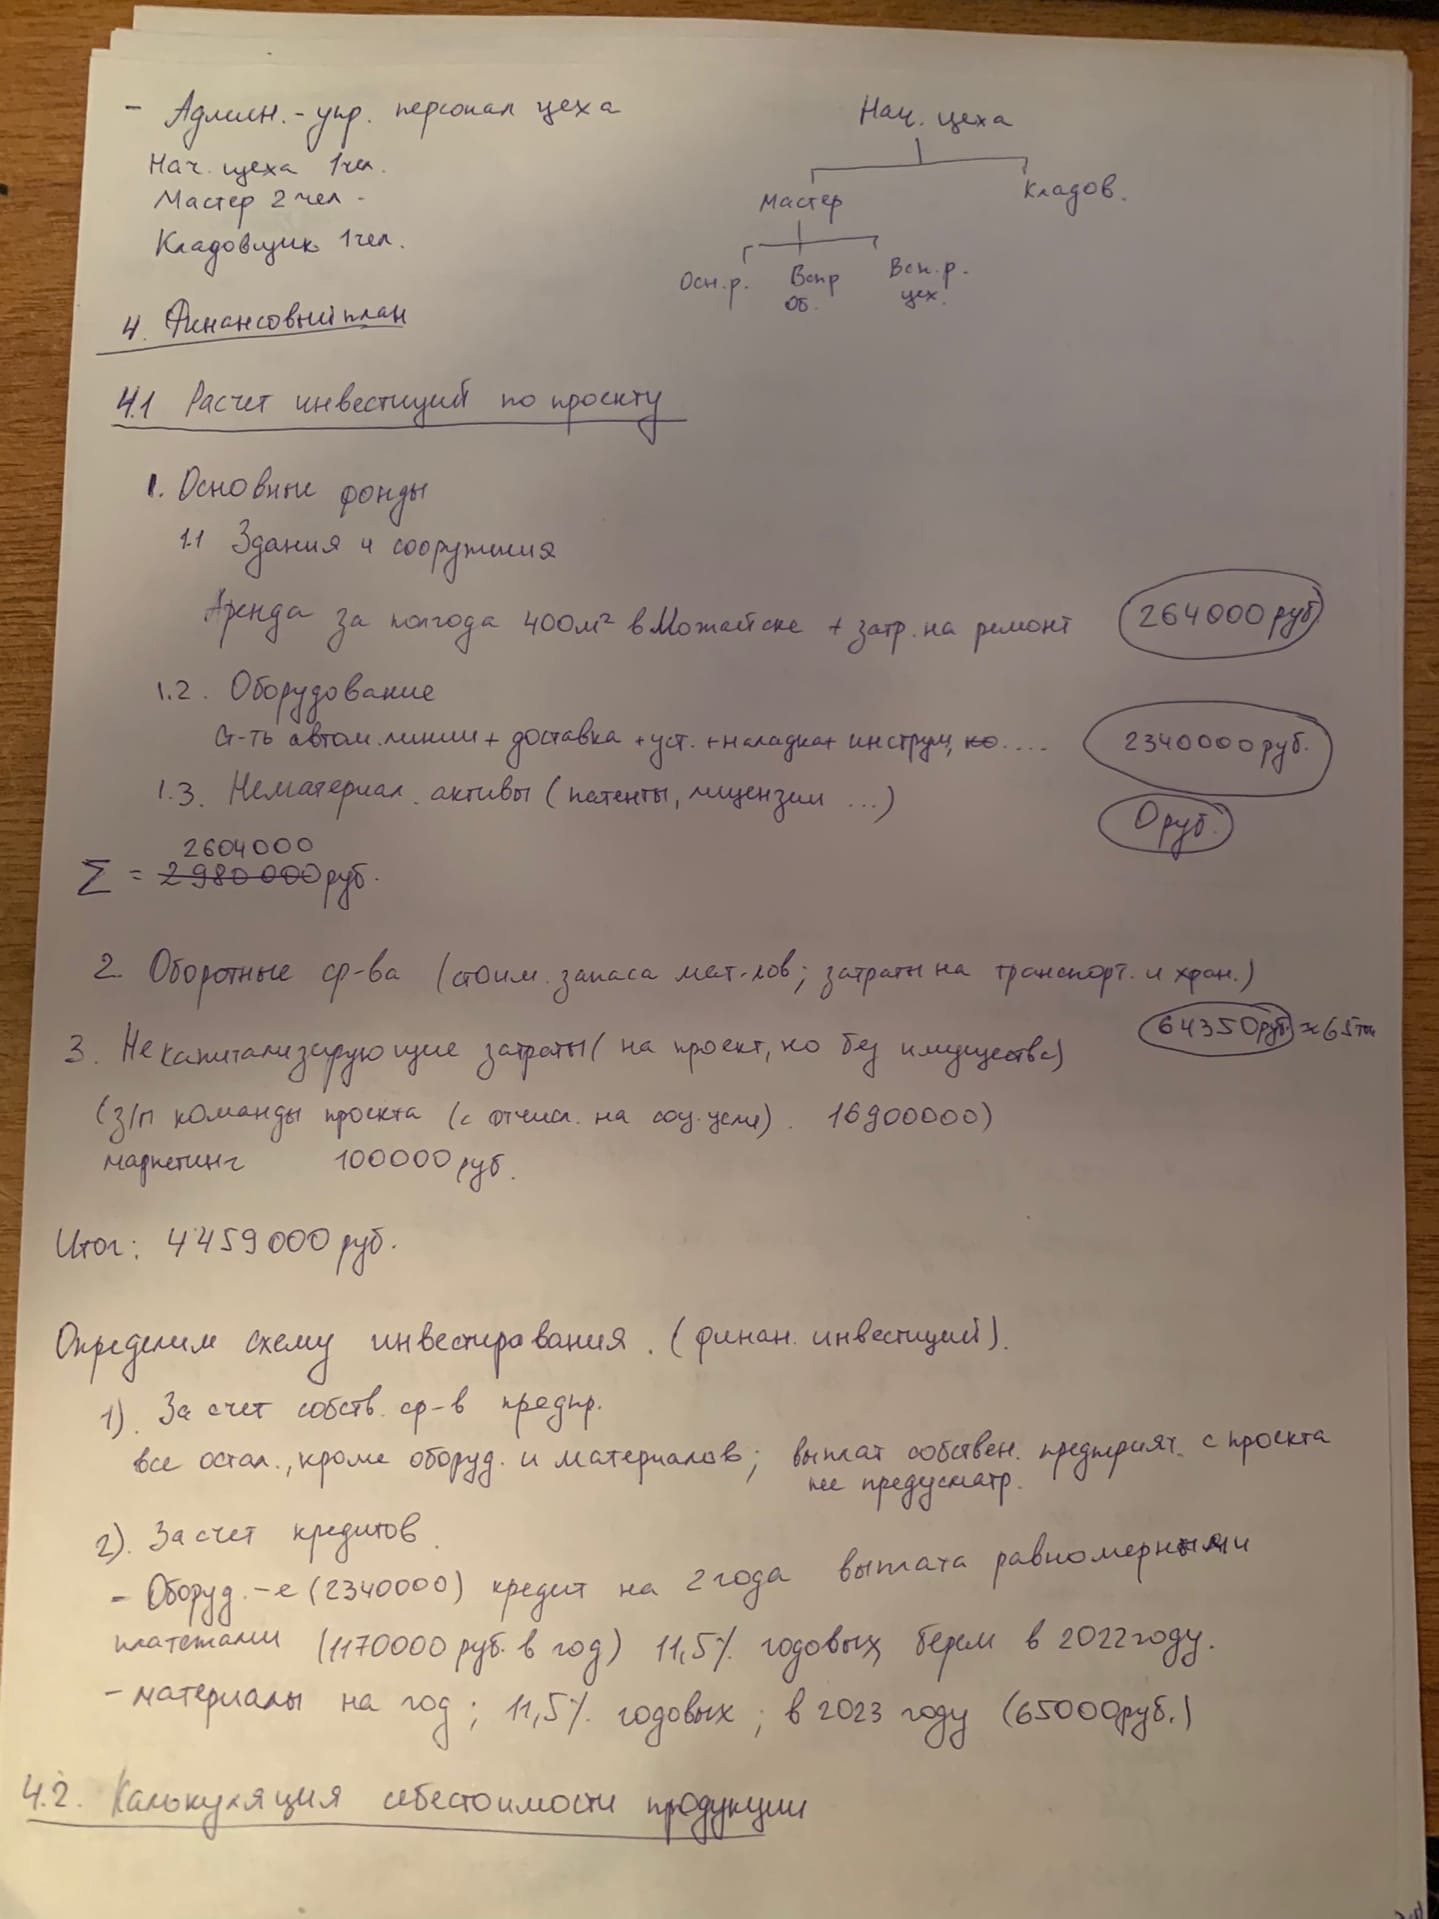 - Админ.-упр. персонал цеха
Нач. цеха 1 чел.
Мастер 2 чел.
Кладовщик 1 чел.
Нач. цеха
Мастер Кладов.
Осн.р. Вспр Об. Всп.р. цех.
4. Финансовый план
4.1 Расчет инвестиций по проекту
1. Основные фонды
1.1 Здания и сооружения
Аренда за полгода 400м² в Можайске + затр. на ремонт 264000 руб
1.2. Оборудование
Ст-ть автом. линии + доставка + уст. + наладка + инструм, но.... 2340000 руб.
1.3. Нематериал. активы (патенты, лицензии ...) 0 руб.
2604000
Σ = 2980000 руб.
2. Оборотные ср-ва (стоим. запаса мат-лов; затраты на транспорт. и хран.)
64350 руб. ≈ 65 тыс
3. Некапитализирующие затраты (на проект, но без имущества)
(з/п команды проекта (с отчисл. на соц. ). 16900000)
маркетинг 100000 руб.
Итог: 4459000 руб.
Определим схему инвестирования. (финан. инвестиций).
1). За счет собств. ср-в предпр.
все остал., кроме оборуд. и материалов; выплат собствен. предприят. с проекта
не предусматр.
2). За счет кредитов.
- Оборуд.-е (2340000) кредит на 2 года выплата равномерными
платежами (1170000 руб. в год) 11,5% годовых, берем в 2022 году.
- материалы на год; 11,5% годовых; в 2023 году (65000руб.)
4.2. Калькуляция себестоимости продукции